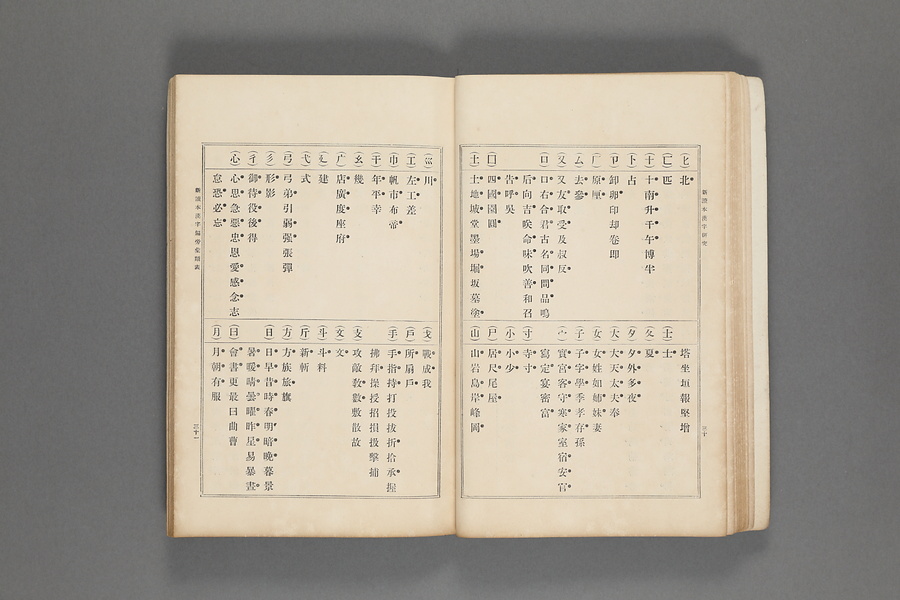 新讀本漢字研究
(匕) 北
(匚) 匹
(十) 十南升千午博半
(卜) 占
(卩) 卸卵印却卷即
(厂) 原厘
(厶) 去參
(又) 又友取受及叔反
(口) 口右合君古名同問品鳴
后向吉咲命味吹善和召
告呼吳
(囗) 四國園圓
(土) 土地城堂墨場堀坂墓塗
塔坐垣報堅增
(士) 士
(夊) 夏
(夕) 夕外多夜
(大) 大天太夫奉
(女) 女姓如姉妹妻
(子) 子字學季孝存孫
(宀) 實宮客守寒家室宿安官
寫定宴密富
(寸) 寺寸
(小) 小少
(尸) 居尺尾屋
(山) 山岩島岸峰岡
三十
(巛) 川
(工) 左工差
(巾) 巾帆市布帝
(干) 年平幸
(幺) 幾
(广) 店廣度座府
(廴) 建
(弋) 式
(弓) 弓弟引弱强張彈
(彡) 形影
(彳) 御待役後得
(心) 心思急惡忠恩愛感念志
怠恐必忘
(戈) 戰成我
(戶) 所扇戶
(手) 手指持打投拔折拾承握
拂拜操授招損扱擊捕
(攴) 攻敵教數敷散故
(文) 文
(斗) 斗料
(斤) 新斬
(方) 方族旅旗
(日) 日早昔時春明暗晚暮景
暑暖晴曇曜昨星易暴晝
(曰) 會書更最曰曲曹
(月) 月朝有服
三十一